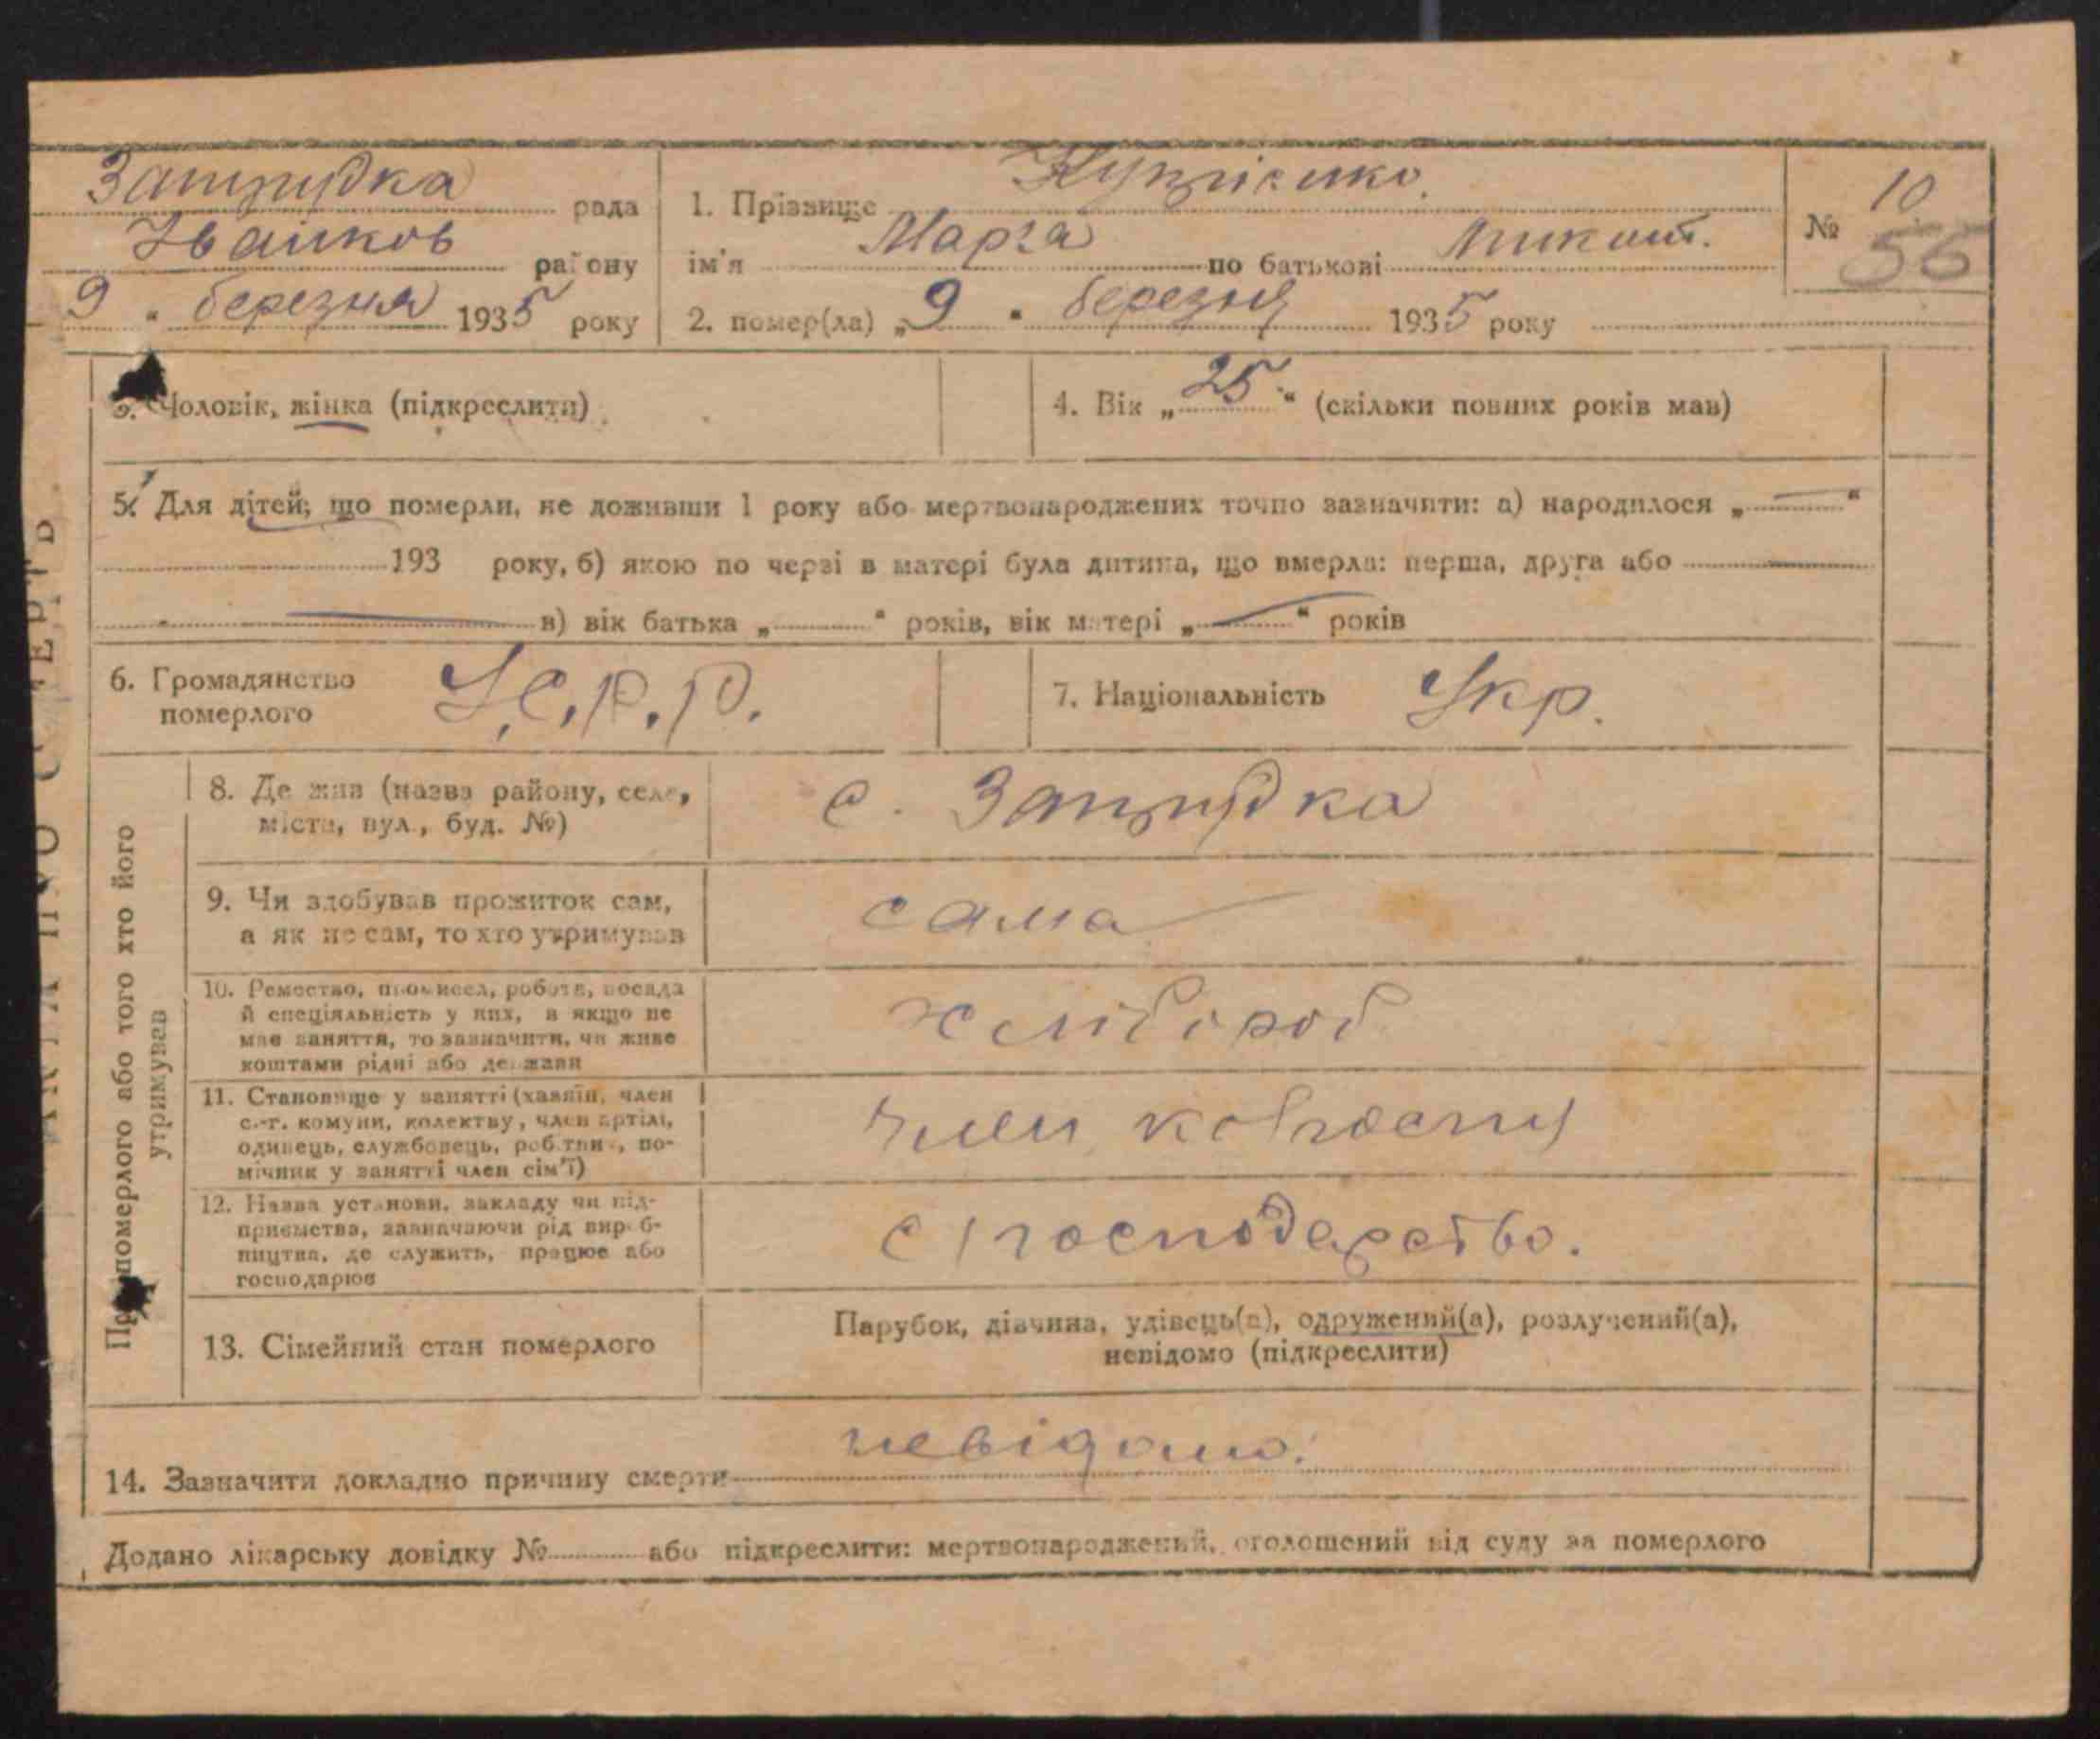 Запрудка рада
Іванков району
9 " березня 1935 року
1. Прізвище Купрієнко
ім'я Марга по батькові Микит.
2. помер(ла) „ 9 " березня 1935 року
№ 10
56
3. Чоловік, жінка (підкреслити)
4. Вік „ 25 " (скільки повних років мав)
5. Для дітей, що померли, не доживши 1 року або мертвонароджених точно зазначити: а) народилося „ "
193 року, б) якою по черзі в матері була дитина, що вмерла: перша, друга або
в) вік батька „ " років, вік матері „ " років
6. Громадянство
померлого
У.С.Р.Р.
7. Національність Укр.
Про померлого або того хто його
утримував
8. Де жив (назва району, села,
міста, вул., буд. №)
с. Запрудка
9. Чи здобував прожиток сам,
а як не сам, то хто утримував
сама
10. Ремество, промисел, робота, посада
й спеціяльність у них, а якщо не
має заняття, то зазначити, чи живе
коштами рідні або держави
хлібороб
11. Становище у занятті (хазяїн, член
с.-г. комуни, колективу, член артілі,
одинець, службовець, робітник, по-
мічник у занятті член сім'ї)
член колгоспу
12. Назва установи, закладу чи під-
приємства, зазначаючи рід вироб-
ництва, де служить, працює або
господарює
с/господарство.
13. Сімейний стан померлого
Парубок, дівчина, удівець(а), одружений(а), розлучений(а),
невідомо (підкреслити)
14. Зазначити докладно причину смерти невідомо.
Додано лікарську довідку № або підкреслити: мертвонароджений, оголошений від суду за померлого